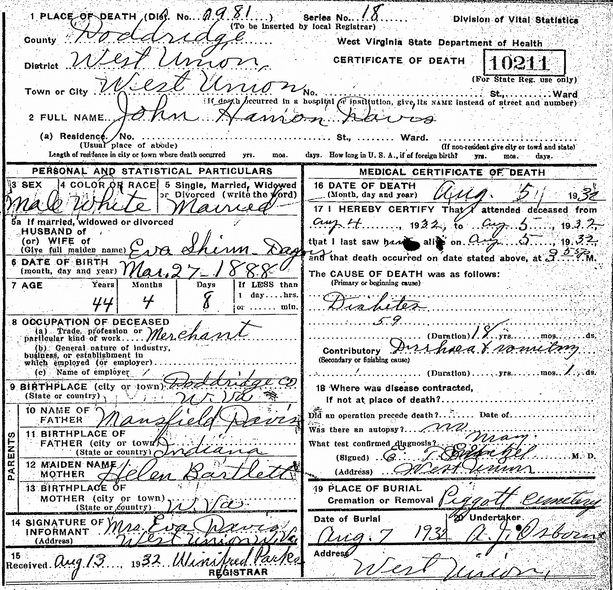 1 PLACE OF DEATH (Dist. No. 0981 Series No. 18 Division of Vital Statistics
(To be inserted by local Registrar)
County Doddridge West Virginia State Department of Health
District West Union CERTIFICATE OF DEATH 10211
(For State Reg. use only)
Town or City West Union No. St., Ward
(If death occurred in a hospital or institution, give its NAME instead of street and number)
2 FULL NAME John Davis
(a) Residence, No. St., Ward.
(Usual place of abode) (If non-resident give city or town and state)
Length of residence in city or town where death occurred yrs. mos. days. How long in U. S. A., if of foreign birth? yrs. mos. days.
PERSONAL AND STATISTICAL PARTICULARS
3 SEX 4 COLOR OR RACE 5 Single, Married, Widowed
or Divorced (write the word)
Male White Married
5a If married, widowed or divorced
HUSBAND of
(or) WIFE of
(Give full maiden name) Eva Shinn Davis
6 DATE OF BIRTH
(month, day and year) Mar. 27-1888
7 AGE Years Months Days If LESS than
1 day hrs.
44 4 8 or min.
8 OCCUPATION OF DECEASED
(a) Trade, profession or
particular kind of work Merchant
(b) General nature of industry,
business, or establishment in
which employed (or employer)
(c) Name of employer
9 BIRTHPLACE (city or town) Doddridge Co.
(State or country) W. Va
PARENTS
10 NAME OF
FATHER Mansfield Davis
11 BIRTHPLACE OF
FATHER (city or town)
(State or country) Indiana
12 MAIDEN NAME
MOTHER Helen Bartlett
13 BIRTHPLACE OF
MOTHER (city or town)
(State or country) W. Va
14 SIGNATURE OF
INFORMANT Mrs. Eva Davis
(Address) West Union W. Va
15
Received Aug 13, 1932 Winifred Parks
REGISTRAR
MEDICAL CERTIFICATE OF DEATH
16 DATE OF DEATH
(Month, day and year) Aug. 5, 1932
17 I HEREBY CERTIFY That I attended deceased from
Aug 4, 1932, to Aug 5, 1932
that I last saw alive on Aug 5, 1932
and that death occurred on date stated above, at M.
The CAUSE OF DEATH was as follows:
(Primary or beginning cause)
Diabetes
59
(Duration) 18 yrs. mos. ds.
Contributory Diarrhoea & vomiting
(Secondary or finishing cause)
(Duration) yrs. mos. 1 ds.
18 Where was disease contracted,
If not at place of death?
Did an operation precede death? Date of
Was there an autopsy? no
What test confirmed diagnosis?
(Signed) M. D.
(Address) West Union
19 PLACE OF BURIAL
Cremation or Removal Piggott Cemetery
Date of Burial 20 Undertaker
Aug. 7 1932 A. J. Osborn
Address
West Union,